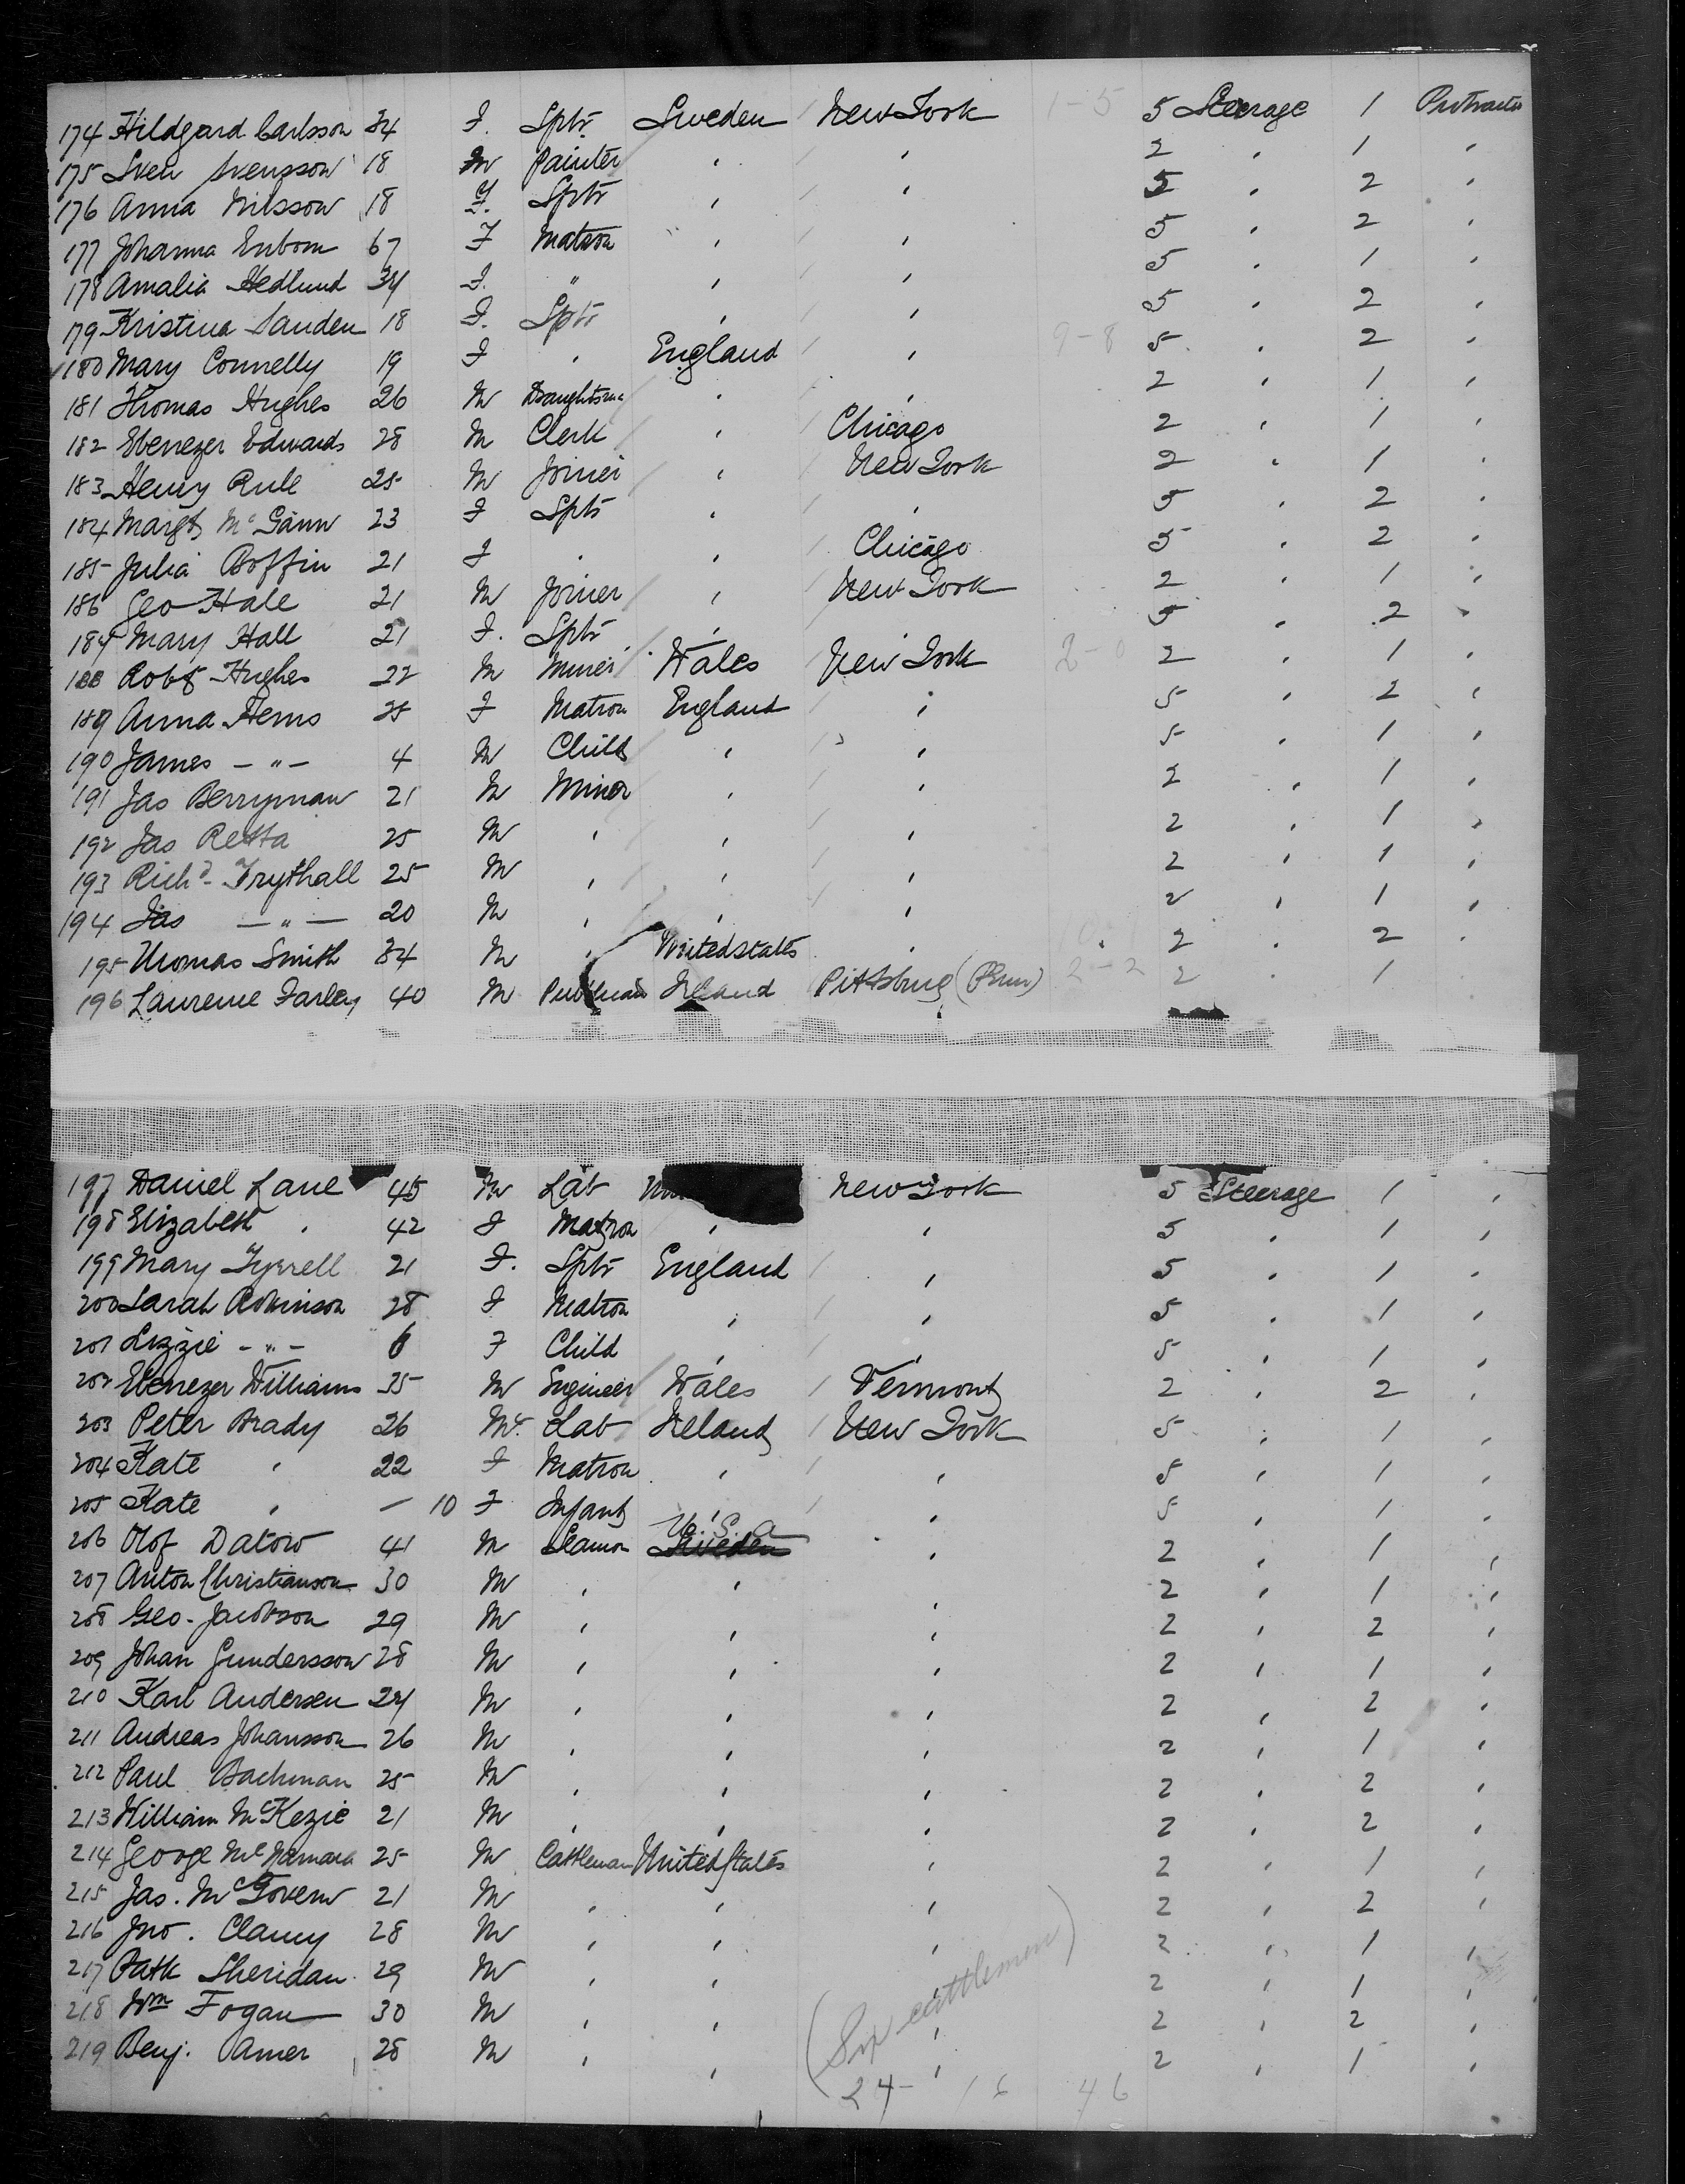 174 Hildgard Carlsson 34 F. Sptr Sweden New York 1-5 5 Steerage 1 Protracted
175 Sven Svensson 18 M Painter " " 2 " 1 "
176 Anna Nilsson 18 F. Sptr " " 5 " 2 "
177 Johanna Enbom 67 F Matron " " 5 " 2 "
178 Amalia Hedlund 34 F. " " " 5 " 1 "
179 Kristina Sanden 18 F. Sptr " " 5 " 2 "
180 Mary Connelly 19 F " England " 9-8 5 " 2 "
181 Thomas Hughes 26 M Draughtsman " " 2 " 1 "
182 Ebenezer Edwards 28 M Clerk " Chicago 2 " 1 "
183 Henry Rule 25 M Joiner " New York 2 " 1 "
184 Margt McGann 23 F Sptr " " 5 " 2 "
185 Julia Boffin 21 F " " Chicago 5 " 2 "
186 Geo Hale 21 M Joiner " New York 2 " 1 "
187 Mary Hall 21 F. Sptr " " 5 " 2 "
188 Robt Hughes 22 M Miner Wales New York 2-0 2 " 1 "
189 Anna Hems 25 F Matron England " 5 " 2 "
190 James - " - 4 M Child " " 5 " 1 "
191 Jas Berryman 21 M Minor " " 2 " 1 "
192 Jas Retta 25 M " " " 2 " 1 "
193 Richd Trythall 25 M " " " 2 " 1 "
194 Jas - " - 20 M " " " 2 " 1 "
195 Thomas Smith 34 M " United States " 2 " 2 "
196 Laurence Farley 40 M Ireland Pittsburg (Penn) 2-2 2 " 1
197 Daniel Lane 45 M Lab New York 5 Steerage 1 "
198 Elizabeth " 42 F Matron " " 5 " 1 "
199 Mary Tyrrell 21 F. Sptr England " 5 " 1 "
200 Sarah Robinson 28 F Matron " " 5 " 1 "
201 Lizzie - " - 6 F Child " " 5 " 1 "
202 Ebenezer Williams 35 M Engineer Wales Vermont 2 " 2 "
203 Peter Brady 26 M. Lab Ireland New York 5 " 1 "
204 Kate " 22 F Matron " " 5 " 1 "
205 Kate " - 10 F Infant " " 5 " 1 "
206 Olof Datow 41 M Seamen U.S.A Sweden " 2 " 1 "
207 Anton Christianson 30 M " " " 2 " 1 "
208 Geo. Jacobson 29 M " " " 2 " 2 "
209 Johan Gundersson 28 M " " " 2 " 1 "
210 Karl Andersen 24 M " " " 2 " 2 "
211 Andreas Johansson 26 M " " " 2 " 1 "
212 Paul Bachman 25 M " " " 2 " 2 "
213 William McKezie 21 M " " " 2 " 2 "
214 George McNamara 25 M Cattleman United States " 2 " 1 "
215 Jas. McGovern 21 M " " " 2 " 2 "
216 Jno. Clancy 28 M " " " 2 " 1 "
217 Patk Sheridan 29 M " " " 2 " 1 "
218 Wm Fogan 30 M " " " 2 " 2 "
219 Benj. Amer 28 M " " " 2 " 1 "
(Six cattlemen)
24- 16 46